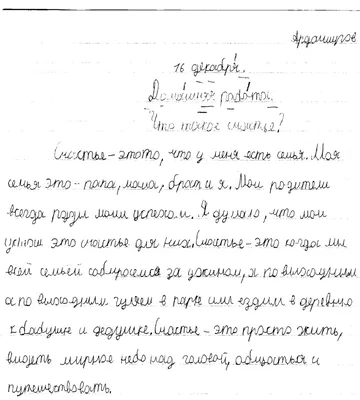 Арданиугов
16 декабря.
Домашняя работа.
Что такое счастье?
Счастье - этото, что у меня есть семья. Моя
семья это - папа, мама, брат и я. Мои родители
всегда рады моим успехам. Я думаю, что мои
успехи это счастье для них. Счастье - это когда мы
всей семьей собираемся за ужином, а по выходным
а по выходным гуляем в парке или ездим в деревню
к бабушке и дедушке. Счастье - это просто жить,
видеть мирное небо над головой, общаться и
путешествовать.